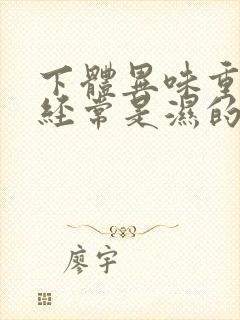 下體異味重
經常是濕的
廖宇